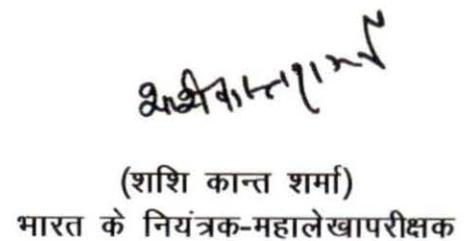 शशी कान्त शर्मा
(शशि कान्त शर्मा)
भारत के नियंत्रक-महालेखापरीक्षक